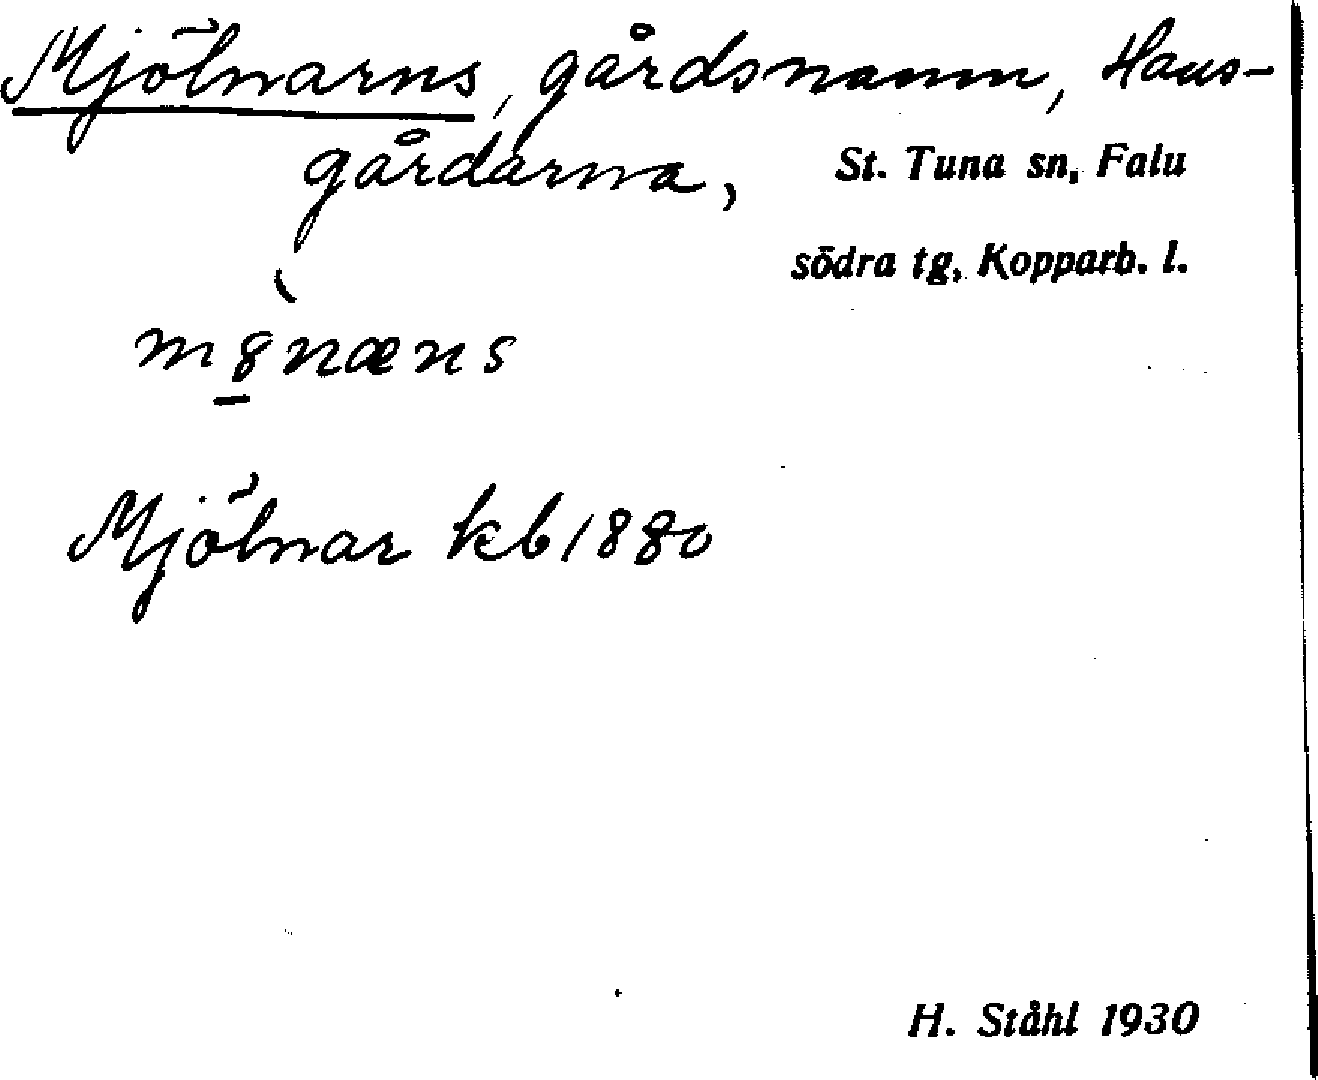 Mjölnarns, gårdsnamn, Hans-
gårdarna, St. Tuna sn, Falu
södra tg, Kopparb. l.
m8̠̀næns
Mjölnar kb 1880
H. Ståhl 1930